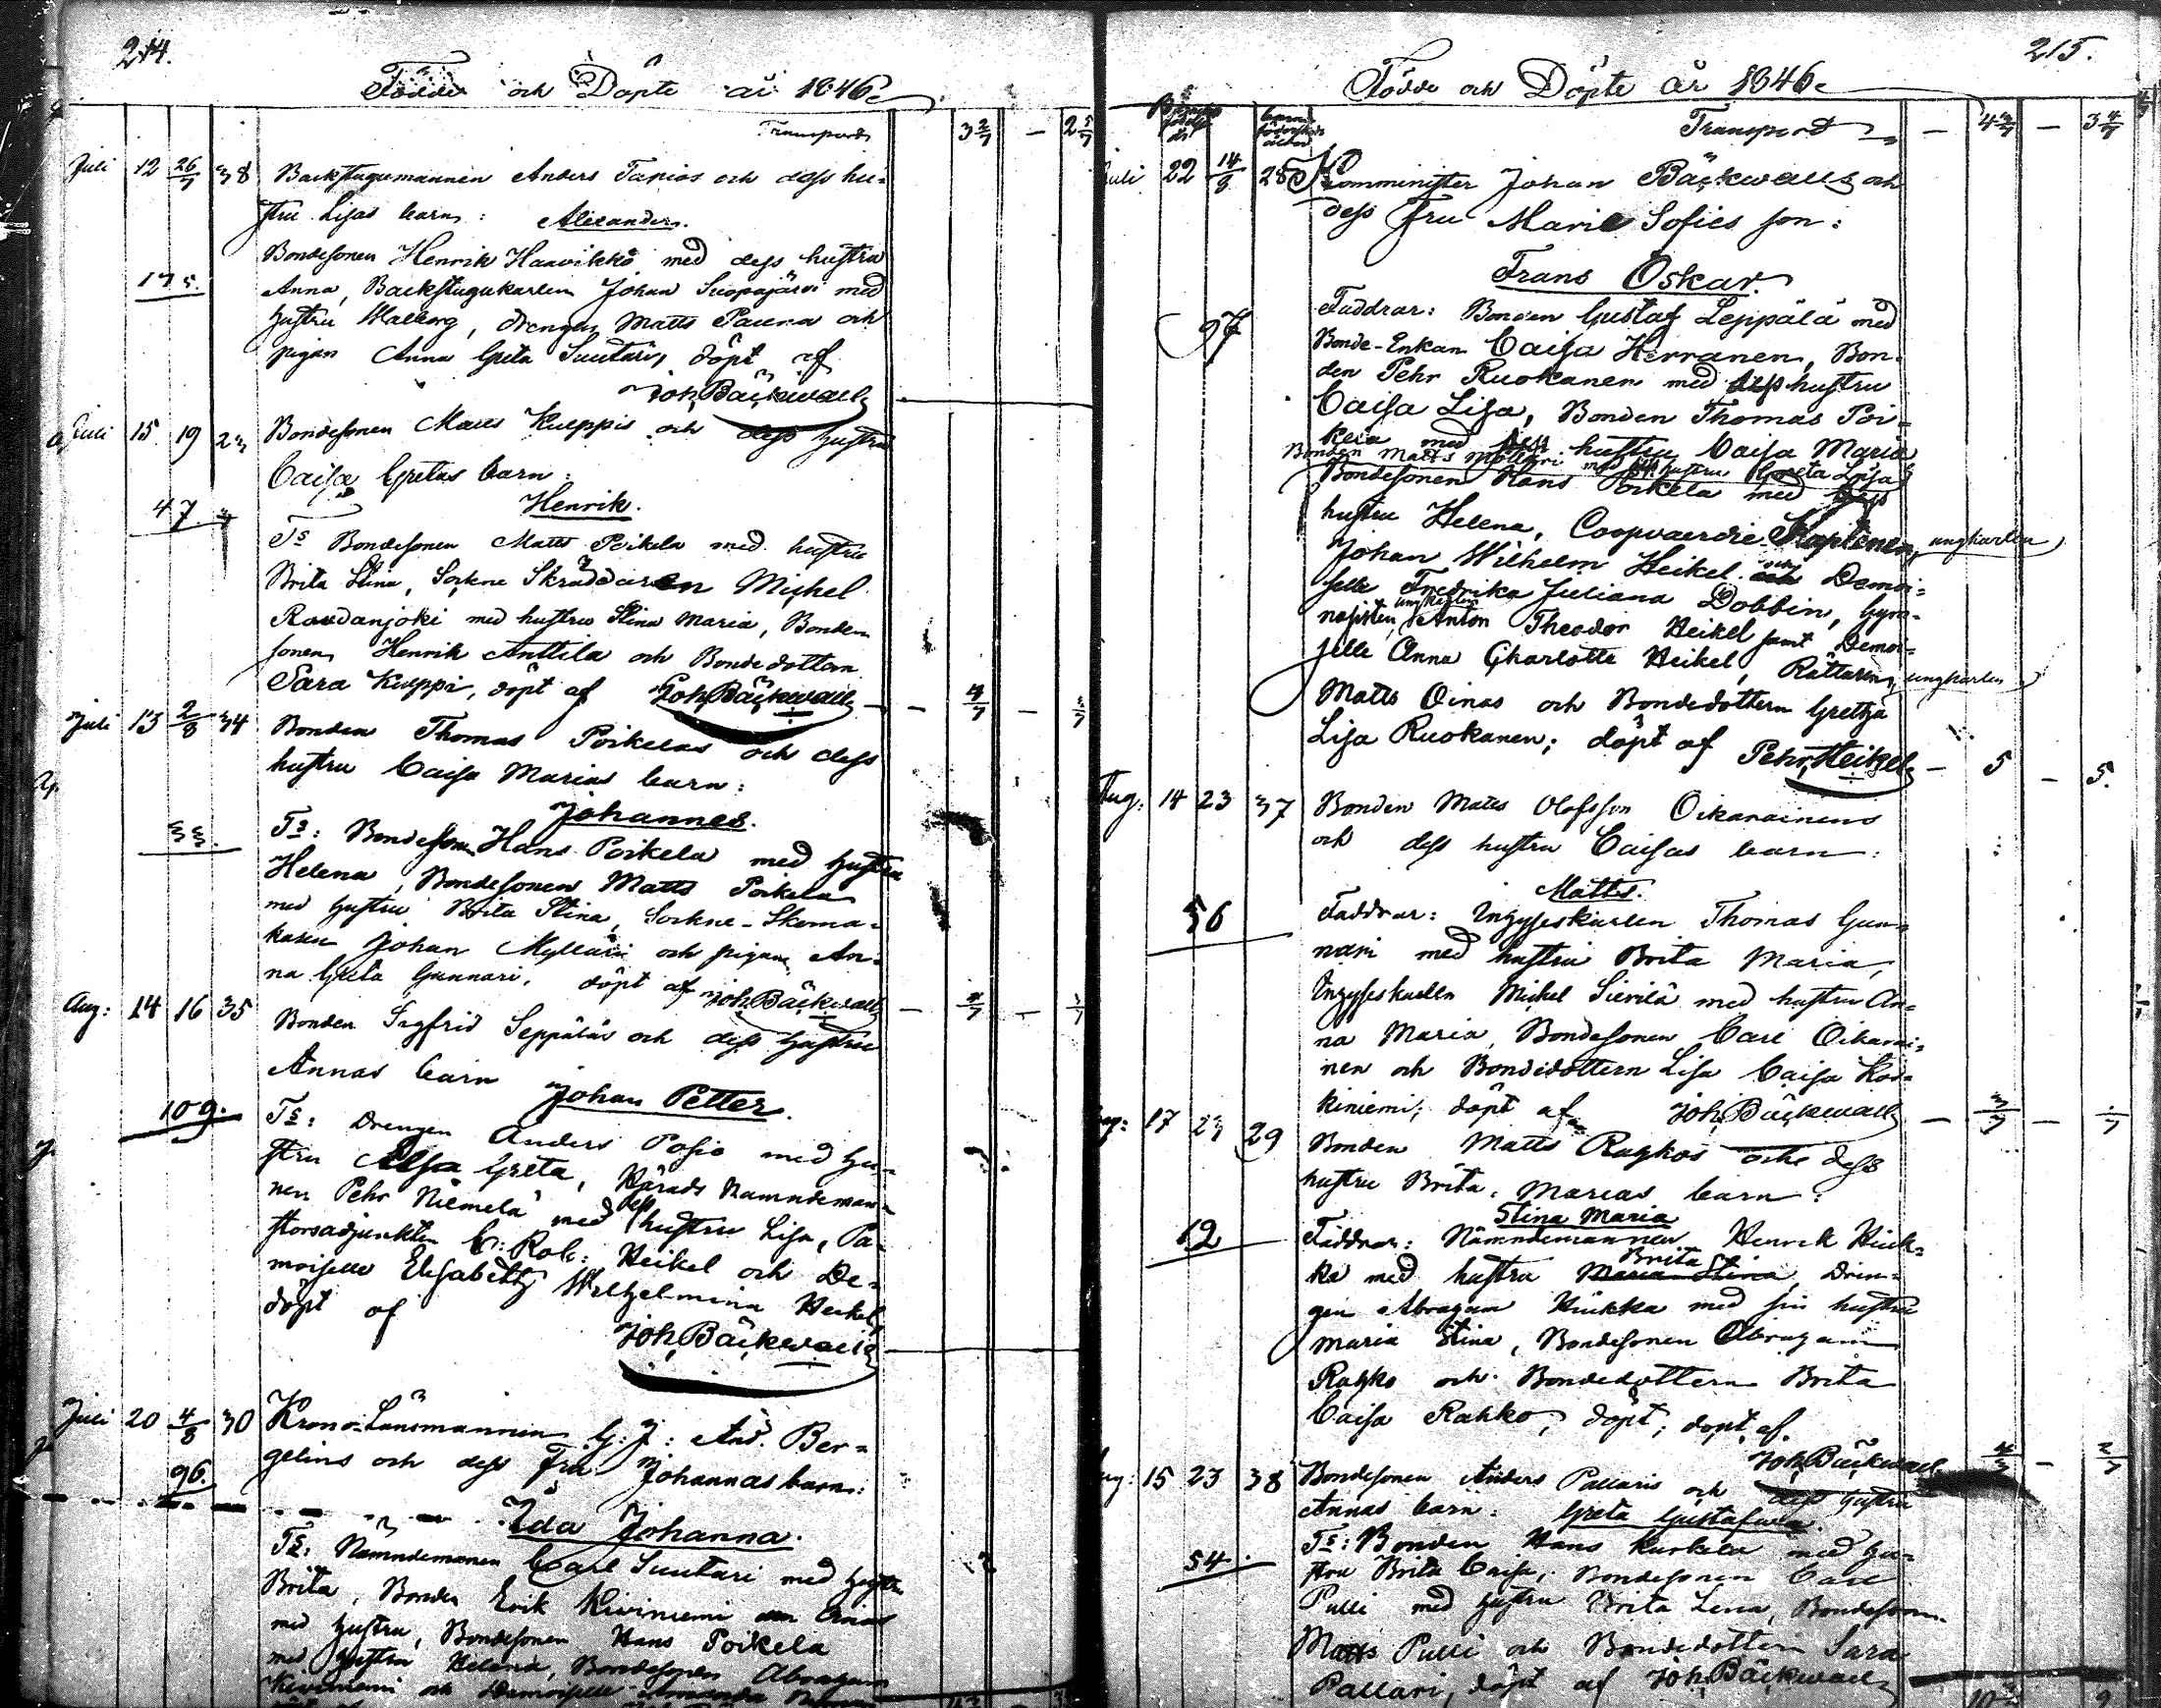 214.
Födde och Döpte år 1846.
Transport 3 2/7 — 2 5/7
Juli 12 26/7 38 Backstugumannen Anders Tapios och dess hu-
stru Lisas barn: Alexander.
Bondesonen Henrik Haavikko med dess hustru
175. Anna, Backstugukarlen Johan Suopajärvi med
hustru Walborg, drengen Matts Pauna och
pigan Anna Greta Suutari, döpt af
Joh Bäckwall
Juli 15 19 23 Bondesonen Kuoppis och dess hustru
Caisa Gretas barn:
47 Henrik.
Ts Bondesonen Matts Poikela med hustru
Brita Stina, Sockne Skräddaren Michel
Raudanjoki med hustru Stina Maria, Bonde
sonen Henrik Anttila och Bondedottern
Sara Kuoppi, döpt af Joh Bäckwall
Juli 13 2/8 34 Bonden Thomas Poikelas och dess
hustru Caisa Marias barn:
Johannes.
33. Ts: Bondesonen Hans Poikela med hustru
Helena, Bondesonen Matts Poikela
med hustru Brita Stina, Sockne-Skoma-
karen Johan Mylläri och pigan An-
na Greta Gunnari, döpt af Joh Bäckwall
Aug: 14 16 35 Bonden Sigfrid Seppäläs och dess hustru
Annas barn Johan Petter.
109. Ts: Drengen Anders Posio med hu-
stru Elsa Greta, Härads Nämndeman-
nen Pehr Niemelä med dess hustru Lisa, Pa-
storsadjunkten C: Rob: Heikel och De-
moiselle Elisabeth Wilhelmina Heikel,
döpt af
Joh Bäckwall
Juli 20 4/8 30 Krono-Länsmannen G: J: And. Ber-
gelins och dess Fru Johannas barn:
96.
Ida Johanna.
Ts: Nämndemanen Carl Suutari med hustru
Brita, Bonden Erik Kiviniemi
med hustru, Bondesonen Hans Poikela
med hustru Helena, Bondesonen Abraham
Kiviniemi och Demoiselle
215.
Födde och Döpte år 1846.
Transport — 4 3/7 — 3 4/7
Juli 22 14/8 28 Comminister Johan Bäckwalls och
dess Fru Marie Sofies son:
Frans Oskar.
97 Faddrar: Bonden Gustaf Leppälä med
Bonde-Enkan Caisa Herranen, Bon-
den Pehr Ruokanen med dess hustru
Caisa Lisa, Bonden Thomas Poi-
kela med dess hustru Caisa Maria
Bonden Matts Mölläri med dess hustru Greta Lisa
Bondesonen Hans Poikela med dess
hustru Helena, Coopvaerdie Kaptenen, ungkarlen
Johan Wilhelm Heikel och Demoi-
selle Fredrika Juliana Dobbin, Gym-
nasisten, ungkarlen Anton Theodor Heikel samt Demoi-
selle Anna Charlotte Heikel, Rättaren, ungkarlen
Matts Oinas och Bondedottern Gretha
Lisa Ruokanen; döpt af Pehr Heikel — 5 — 5.
Aug: 14 23 37 Bonden Matts Olofsson Oikarainens
och dess hustru Caisas barn:
Matts.
56 Faddrar: Inhyseskarlen Thomas Gun-
nari med hustru Brita Maria,
Inhyseskarlen Michel Sierilä med hustru An-
na Maria, Bondesonen Carl Oikarai-
nen och Bondedottern Lisa Caisa Kos-
kiniemi; döpt af Joh Bäckwall
17 23 29 Bonden Matts Rahkos och dess
hustru Brita Marias barn:
Stina Maria
12 Faddrar: Nämndemannen Henrik Hiuk-
ka med hustru Maria Stina Brita, Dren-
gen Abraham Hiukka med sin hustru
Maria Stina, Bondesonen Abraham
Rahko och Bondedottern Brita
Caisa Rahko, döpt; döpt af
Joh Bäckwall
15 23 38 Bondesonen Anders Pallaris och dess hustru
Annas barn: Greta Gustafwa.
54. Ts: Bonden Hans Kurkela med hu-
stru Brita Caisa, Bondesonen Carl
Pulli med hustru Brita Lena, Bondesonen
Matts Pulli och Bondedottern Sara
Pallari, döpt af Joh Bäckwall